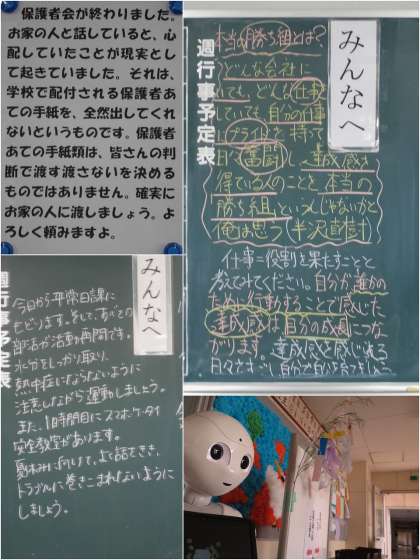 保護者会が終わりました。
お家の人と話していると、心
配していたことが現実とし
て起きていました。それは、
学校で配付される保護者あ
ての手紙を、全然出してくれ
ないというものです。保護者
あての手紙類は、皆さんの判
断で渡す渡さないを決める
ものではありません。確実に
お家の人に渡しましょう。よ
ろしく頼みますよ。
みんなへ
週行事予定表
本当の勝ち組とは?
どんな会社に
いても、どんな仕事
していても、自分の仕事
にプライドを持って
日々奮闘し、達成感を
得ている人のことを本当の
勝ち組というんじゃないかと
俺は思う(半沢直樹)
仕事=役割を果たすことと
考えてみてください。自分が誰かの
ために行動することで感じた
達成感は自分の成長につな
がります。達成感を感じられる
日々をすごし、自分で自分を
みんなへ
週行事予定表
今日から平常日課に
もどります。そして、あべての
部活が活動再開です。
水分をしっかり取り、
熱中症にならないように
注意しながら運動しましょう。
また、1時間目にスマホ・ケータイ
安全教室があります。
夏休みに向けて、よく話をきき、
トラブルに巻きこまれないように
しましょう。